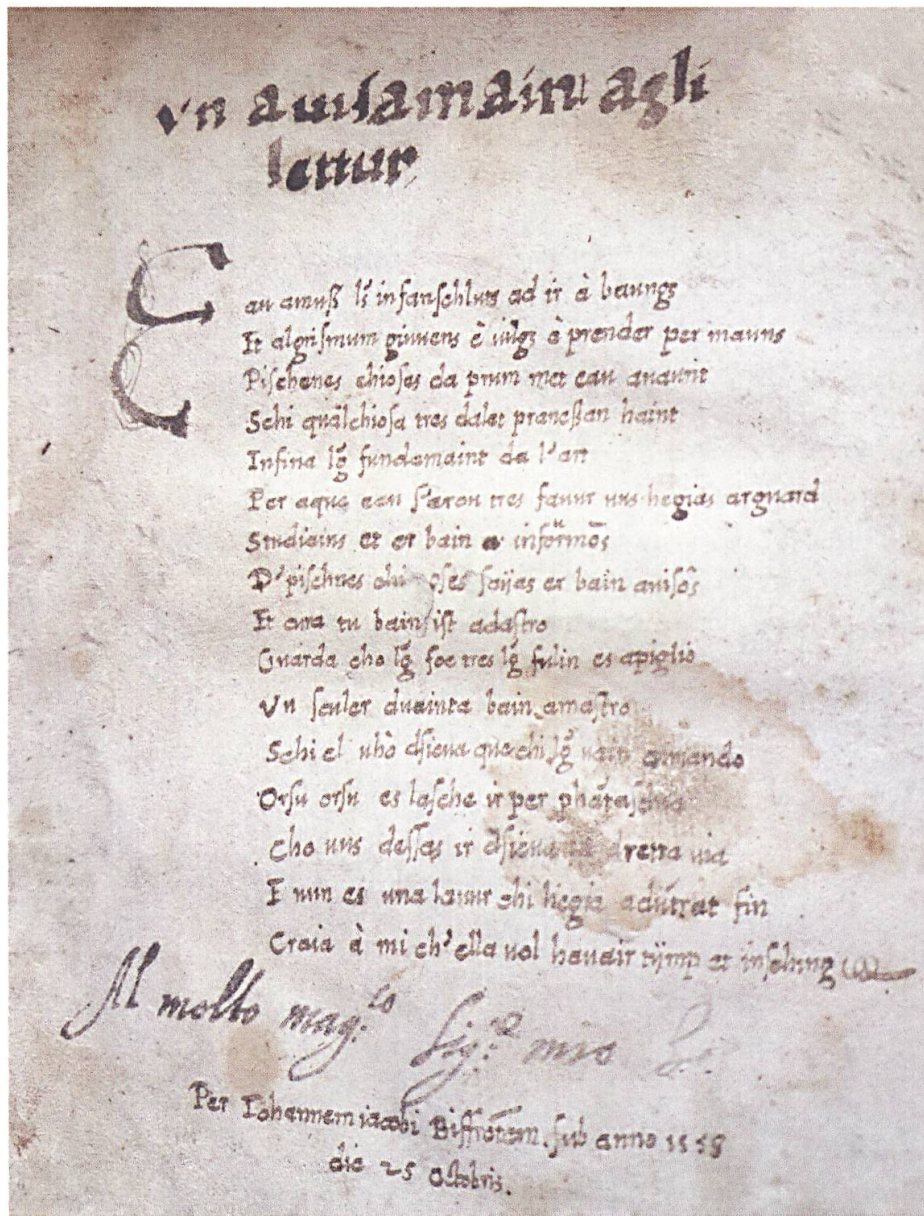 Vn auisamaint agli
lettur
Eau amuß lg̃ infanschluns ad ir à baungs
Et algrismum giuuens è uilgs è prender per mauns
Pischenes chioses da prum met eau auaunt
Schi quälchiosa tres dalet pranḋſan haint
Infina lg̃ fundamaint da l'art
Per aque eau s'æron tres fauur uus hegias arguard
Studiains et er bain a informôs
D'pischnes chioses saijas er bain auisôs
Et ora tu bain ist adastro
Guarda cho lg̃ foe tres lg̃ fulin es apiglio
Vn scular duainta bain amastro
Schi el uho dsieua que chi lg̃ uain amando
Orsu orsu es lasche ir per phataschia
Cho uus desses ir dsieua la dretta uia
E nun es una lauur chi hegia adütrat fin
Craia à mi ch'ella uol hauair tijmp et inschin
Al molto mag:co Sig:r mio
Per Iohannem iacobi Biffrôtem sub anno 1558
die 25 Octobris.